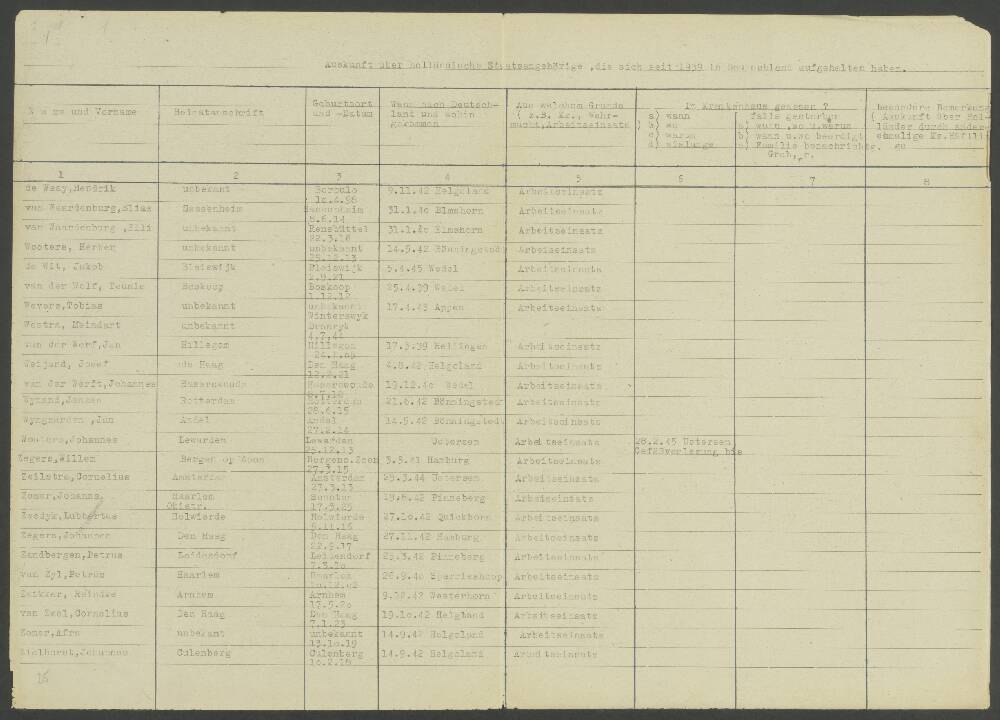 Auskunft über holländische Staatsangehörige ,die sich seit 1939 in Deutschland aufgehalten haben.
Name und Vorname Heimatanschrift Geburtsort und -Datum Wann nach Deutschland und wohin gekommen Aus welchem Grunde ( z.B. Kz., Wehrmacht,Arbeitseinsatz ) Im Krankenhaus gewesen ? a) wann b) wo c) warum d) wielange falls gestorben a) wann,wo u.warum b) wann u.wo beerdigt c) Familie benachrichtg. Grab, r. besondere Bemerkung ( Auskunft über Holländer durch andere ehmalige Kz.Häftli
1 2 3 4 5 6 7 8
de Waay,Hendrik unbekannt Borculo 9.11.42 Helgoland Arbeitseinsatz
van Waardenburg,Elias Sassenheim Sassenheim 31.1.40 Elmshorn Arbeitseinsatz
8.6.14
van Waardenburg ,Elli unbekannt 31.1.40 Elmshorn Arbeitseinsatz
22.3.18
Wooters, Herber unbekannt unbekannt 14.5.42 Bönningstedt Arbeitseinsatz
25.12.13
de Wit, Jakob Bleiswijk Bleiswijk 5.4.43 Wedel Arbeitseinsatz
van der Wolf, Teunis Boskoop Boskoop 25.4.39 Wedel Arbeitseinsatz
1.12.12
Wevers,Tobias unbekannt unbekannt 17.4.43 Appen Arbeitseinsatz
Winterswyk
Westra, Meindart unbekannt
4.7.44
van der Werf,Jan Hillegom Hillegom 17.3.39 Rellingen Arbeitseinsatz
Weijand, Josef de Haag Den Haag 4.8.42 Helgoland Arbeitseinsatz
12.2.21
van der Werft,Johannes Haserswoude Haserswoude 19.12.40 Wedel Arbeitseinsatz
Wynand,Jansen Rotterdam Rotterdam 21.6.42 Bönningstedt Arbeitseinsatz
28.6.15
Wyngaarden ,Jan Andel Andel 14.5.42 Bönningstedt Arbeitseinsatz
27.2.14
Wouters,Johannes Lewarden Lewarden Uetersen Arbeitseinsatz 28.2.45 Uetersen
25.12.13 Gefäßverletzung bis
Zegers,Willem Bergen op Zoom Bergeno.Zoon 3.5.41 Hamburg Arbeitseinsatz
27.3.15
Zeilstra,Cornelius Amsterdam Amsterdam 29.3.44 Uetersen Arbeitseinsatz
27.3.13
Zomer,Johanns Haarlem 18.6.42 Pinneberg Arbeitseinsatz
17.3.25
Zwedyk,Lubbertus Holwierde Holwierde 27.10.42 Quickborn Arbeitseinsatz
9.11.16
Zegers,Johannes Den Haag Den Haag 27.11.42 Hamburg Arbeitseinsatz
22.9.17
Zandbergen,Petrus Leidendorf Leidendorf 29.3.42 Pinneberg Arbeitseinsatz
van Zyl,Petrus Haarlem Haarlem 26.9.40 Sparrieshoop Arbeitseinsatz
10.12.02
Zwikker, Reindke Arnhem Arnhem 9.12.42 Westerhorn Arbeitseinsatz
17.5.20
van Zwol,Cornelius Den Haag Den Haag 19.10.42 Helgoland Arbeitseinsatz
7.1.23
Zomer,Afra unbekannt unbekannt 14.9.42 Helgoland Arbeitseinsatz
13.10.19
Zielhorst,Johannes Culenberg Culenberg 14.9.42 Helgoland Arbeitseinsatz
10.2.18
25